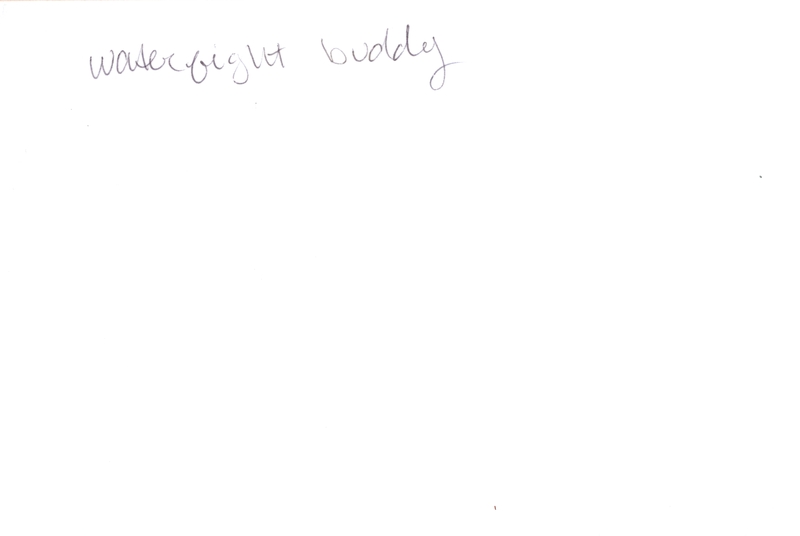 waterfight buddy